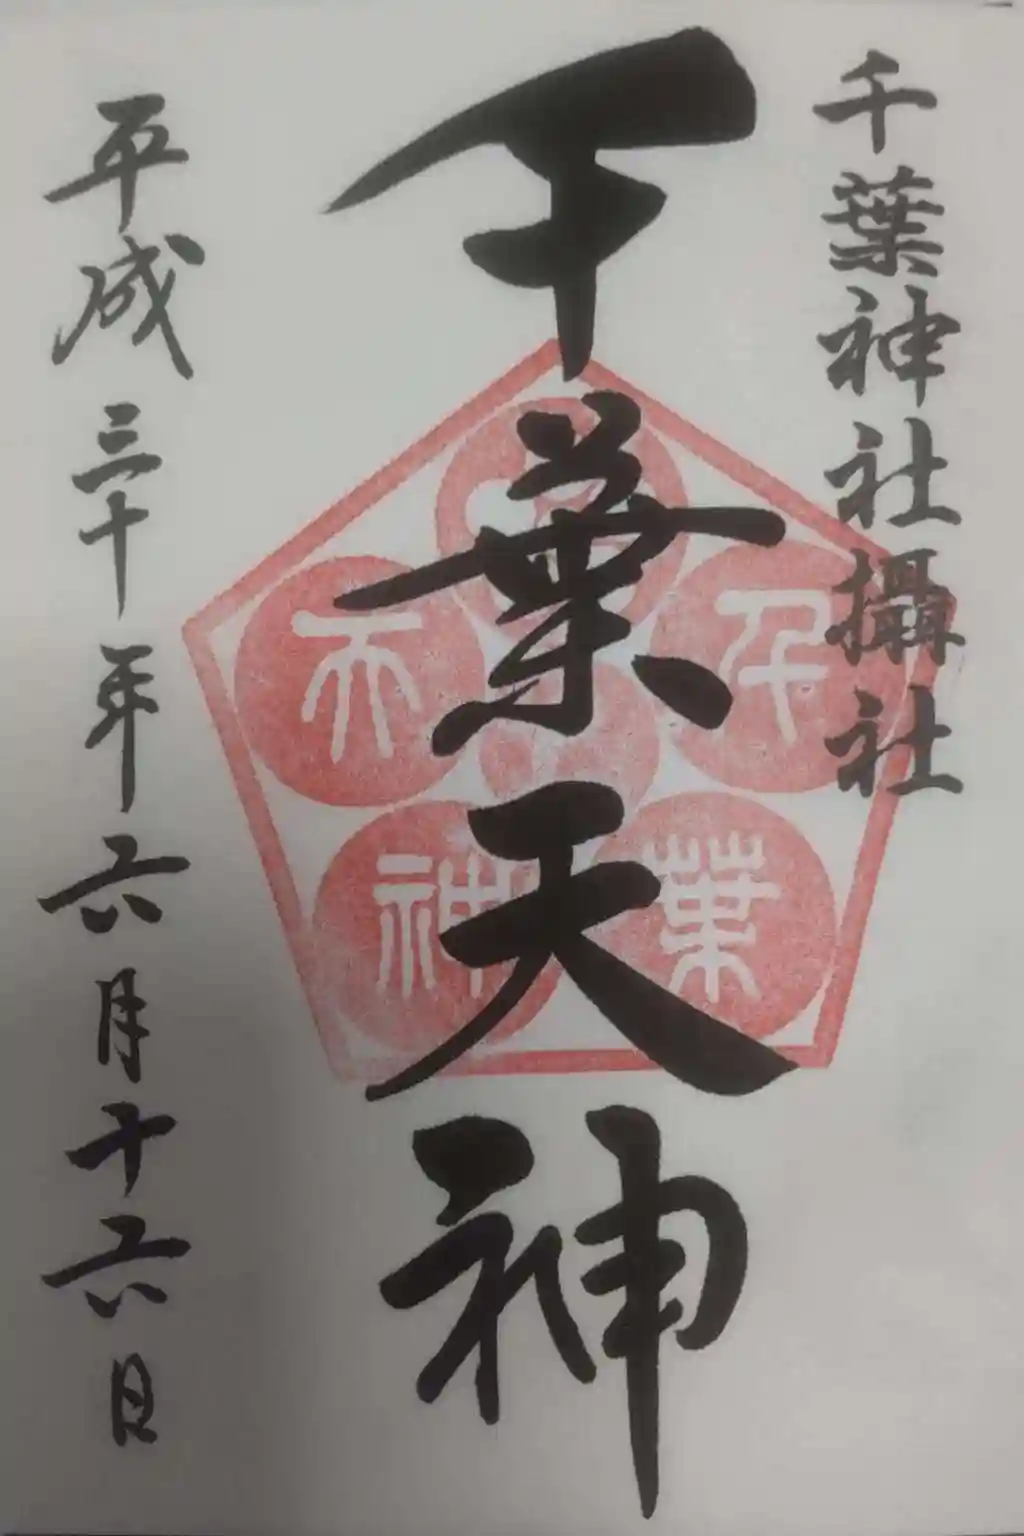 千葉神社攝社
千葉天神
平成三十年六月十六日
千葉天神